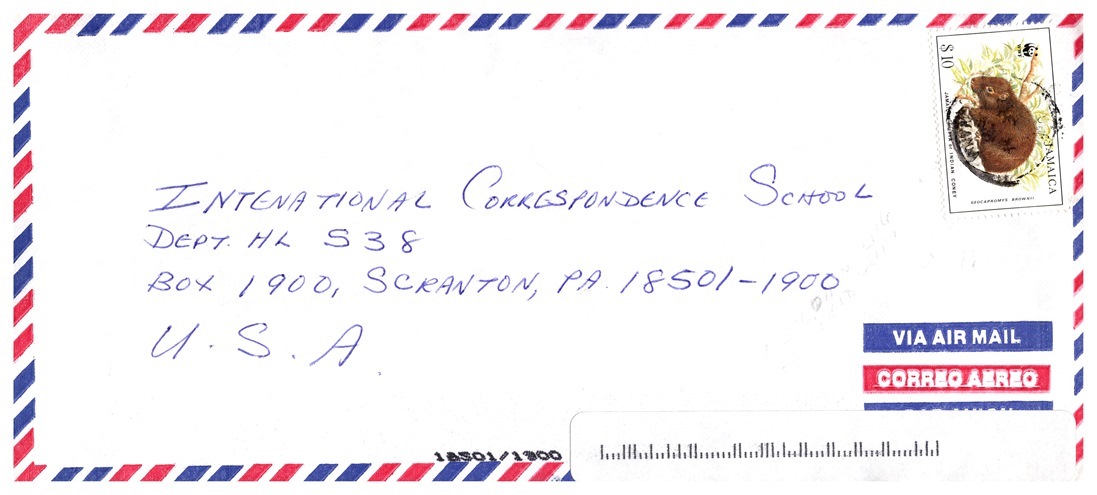 $10
WWF
JAMAICA
GEOCAPROMYS BROWNII
INDIAN CONEY
INTENATIONAL CORRESPONDENCE SCHOOL
DEPT. HL S38
BOX 1900, SCRANTON, PA. 18501-1900
U.S.A.
VIA AIR MAIL
CORREO AEREO
PAR AVION
18501/1900